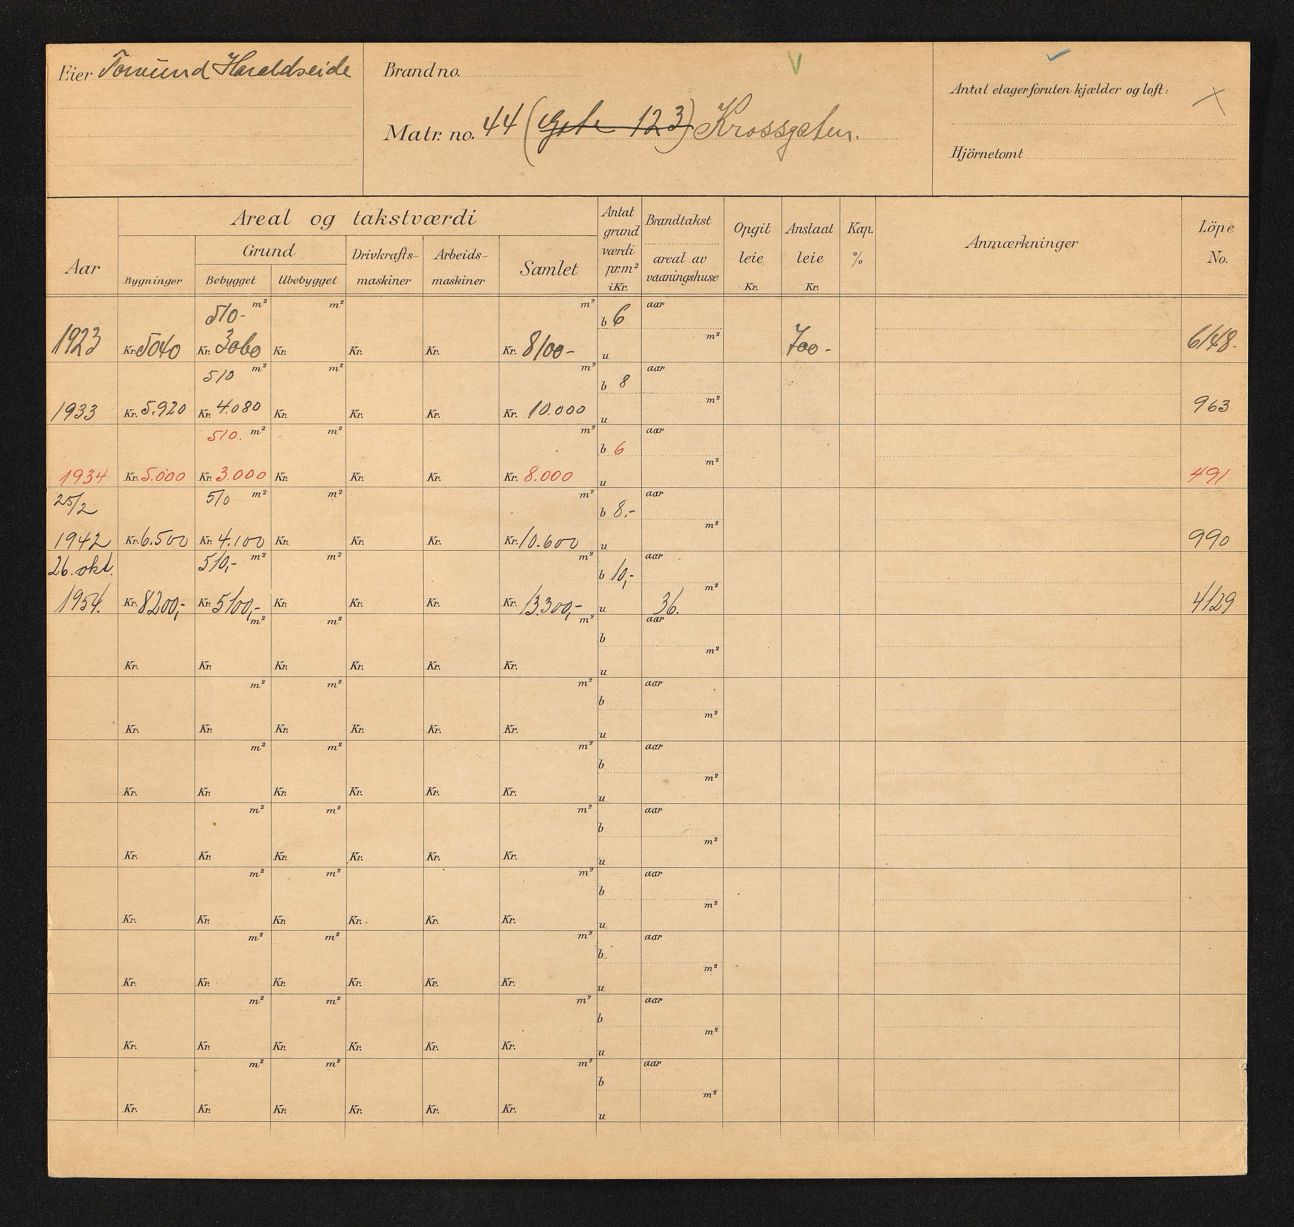 Eier Tormund Haraldseide
Brand no.
Matr. no. 44 (Gate 123) Krossgaten.
Antal etager foruten kjælder og loft:
Hjörnetomt
Aar
Areal og takstværdi
Bygninger
Grund
Bebygget
Ubebygget
Drivkrafts-
maskiner
Arbeids-
maskiner
Samlet
Antat
grund
værdi
pr. m²
i Kr.
Brandtakst
areal av
vaaningshuse
Opgit
leie
Kr.
Anslaat
leie
Kr.
Kap.
%
Anmærkninger
Löpe
No.
510- m² m² m² b 6 aar
1923 Kr. 5040 Kr. 3060 Kr. Kr. Kr. Kr. 8100- u m² 700- 6148.
510 m² m² m² b 8 aar
1933 Kr. 5.920 Kr. 4.080 Kr. Kr. Kr. Kr. 10.000 u m² 963
510. m² m² m² b 6 aar
1934 Kr. 5.000 Kr. 3.000 Kr. Kr. Kr. Kr. 8.000 u m² 491
25/2 510 m² m² m² b 8.- aar
1942 Kr. 6.500 Kr. 4.100 Kr. Kr. Kr. Kr. 10.600 u m² 990
26. okt. 510,- m² m² m² b 10,- aar
1954. Kr. 8200,- Kr. 5100,- Kr. Kr. Kr. Kr. 13.300,- u 36. m² 4129
m² m² m² b aar
Kr. Kr. Kr. Kr. Kr. Kr. u m²
m² m² m² b aar
Kr. Kr. Kr. Kr. Kr. Kr. u m²
m² m² m² b aar
Kr. Kr. Kr. Kr. Kr. Kr. u m²
m² m² m² b aar
Kr. Kr. Kr. Kr. Kr. Kr. u m²
m² m² m² b aar
Kr. Kr. Kr. Kr. Kr. Kr. u m²
m² m² m² b aar
Kr. Kr. Kr. Kr. Kr. Kr. u m²
m² m² m² b aar
Kr. Kr. Kr. Kr. Kr. Kr. u m²
m² m² m² b aar
Kr. Kr. Kr. Kr. Kr. Kr. u m²